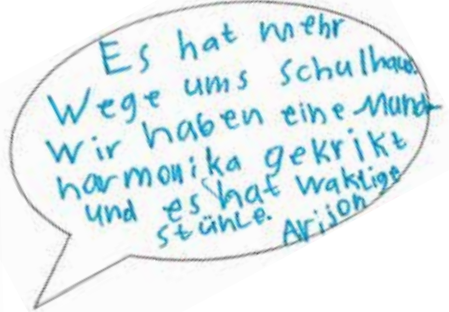 Es hat mehr
Wege ums Schulhaus.
Wir haben eine Mund-
harmonika gekrikt
und es hat waklige
stühle.
Arijon